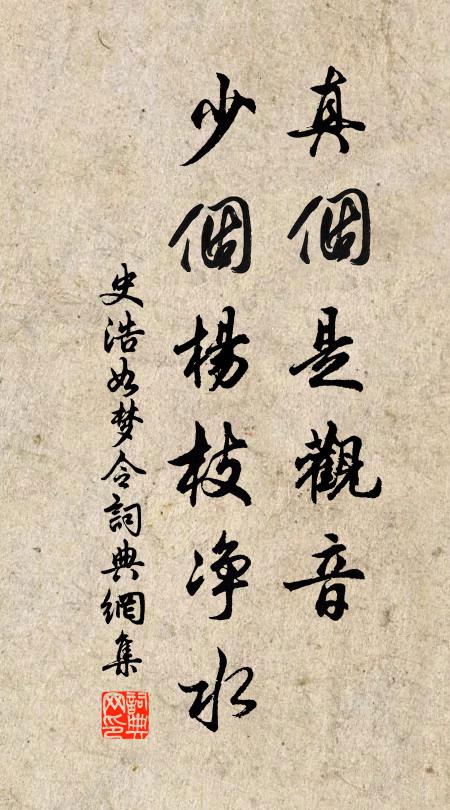 真個是觀音
少個楊枝净水
史浩如梦令詞典網集
詞典网印